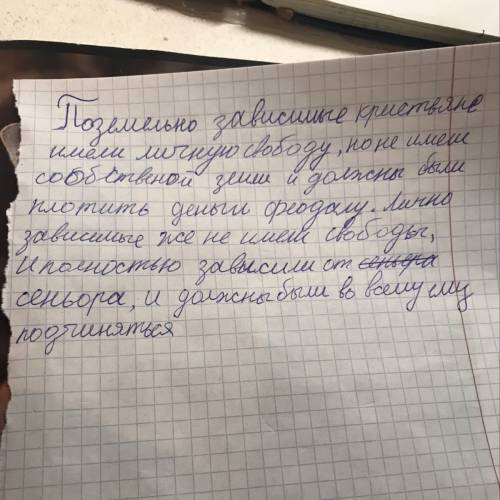 Поземельно зависимые кристьяне
имели личную свободу, но не имели
собственой земли и должны были
плотить деньги феодалу. Лично
зависимые же не имели свободы,
И полностью зависили от сеньера
сеньора, и должны были во всём ему
подчиняться